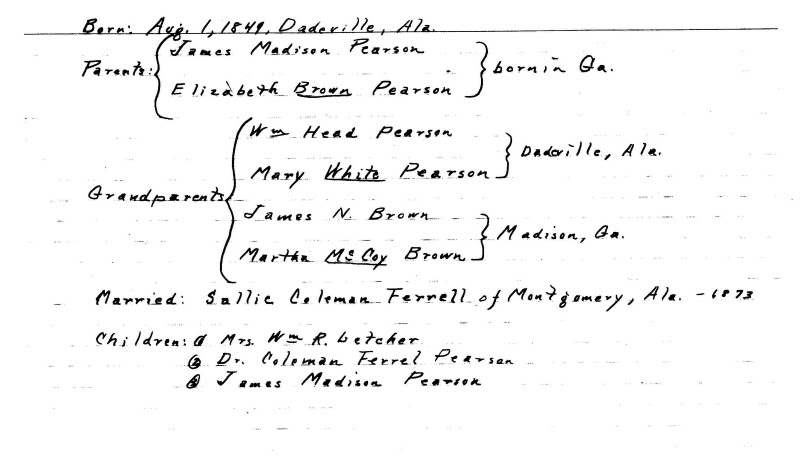 Born: Aug. 1, 1849, Dadeville, Ala.
Parents: { James Madison Pearson
Elizabeth Brown Pearson } born in Ga.
Grandparents { Wm Head Pearson
Mary White Pearson } Dadeville, Ala.
James N. Brown
Martha McCoy Brown } Madison, Ga.
Married: Sallie Coleman Ferrell of Montgomery, Ala. - 1873
Children: ① Mrs. Wm R. Letcher
② Dr. Coleman Ferrel Pearson
③ James Madison Pearson